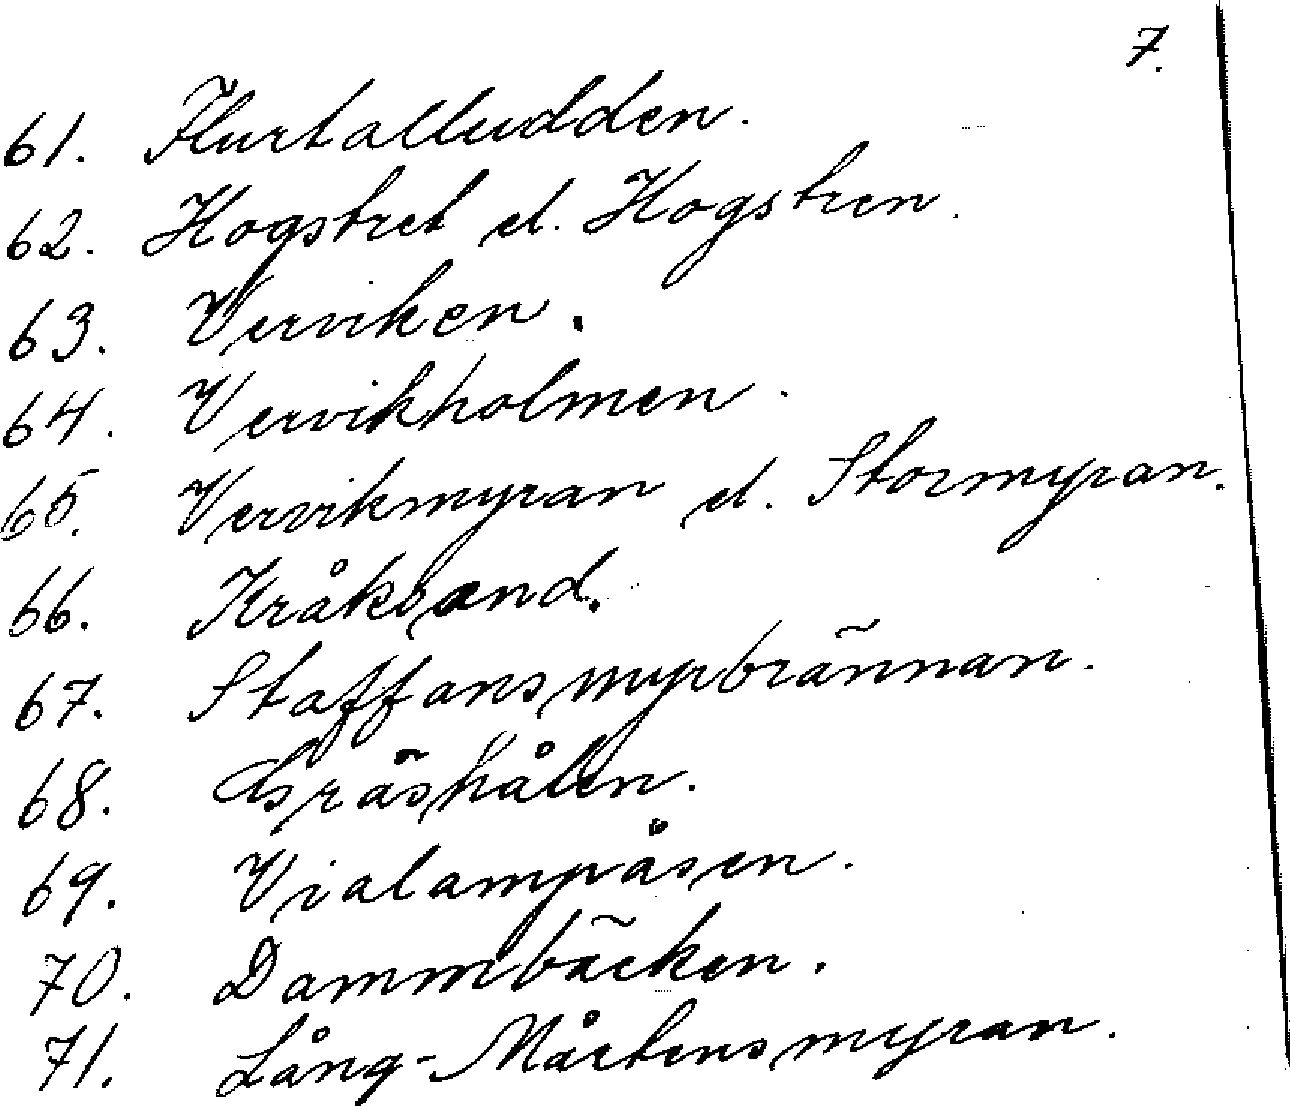 7.
61. Hurtalludden.
62. Hogstret el. Hogstren.
63. Verviken.
64. Vervikholmen.
65. Vervikmyran el. Stormyran.
66. Kråksand.
67. Staffansmyrbrännan.
68. Gräshålen.
69. Vialampåsen.
70. Dammbäcken.
71. Lång-Mårtensmyran.